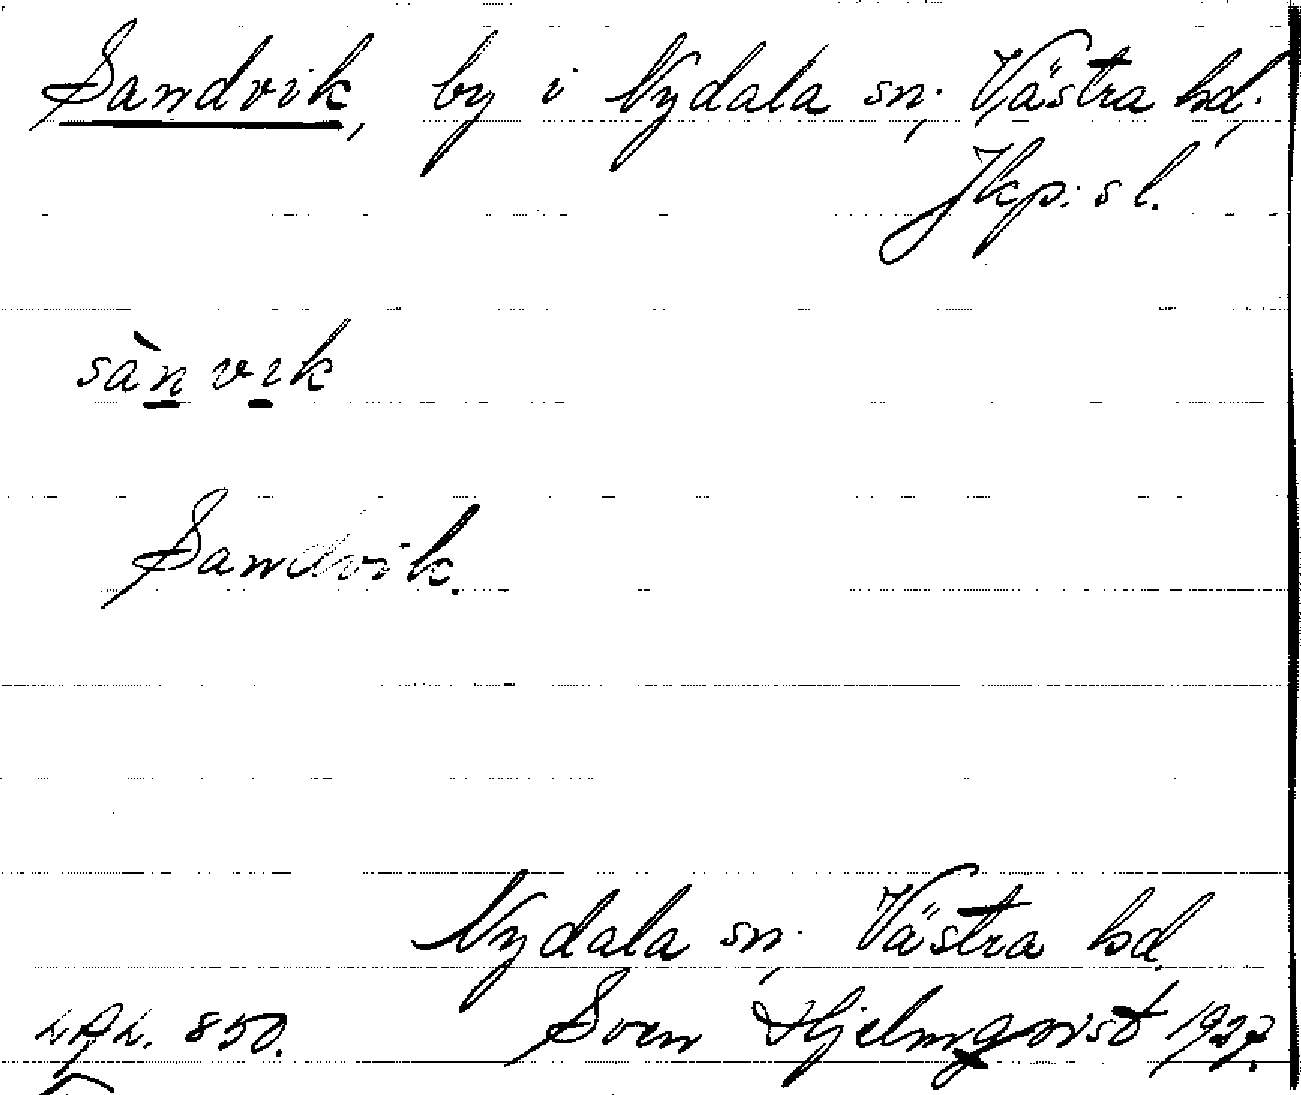 Sandvik, by i Nydala sn; Västra hd;
Jkp: s l.
sànvık
Sandvik.
Nydala sn; Västra hd.
850. Sven Hjelmqvist 1927.